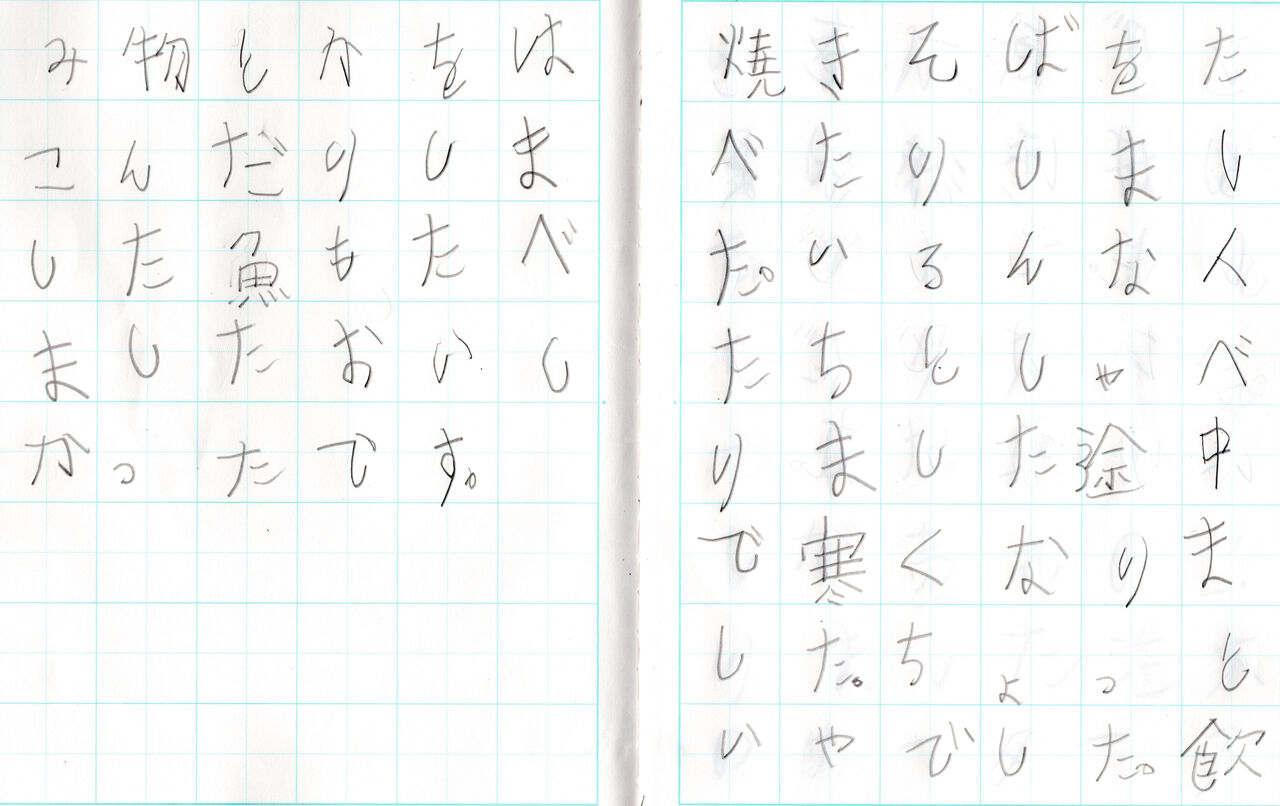 焼きそばをた
べたりしまし
た。いろんな人
たちとしゃべ
りました途中
で寒くなりま
した。ちょっと
いやでした。飲
み物とかをは
こんだりしま
した魚もたべ
ましたおいし
かったです。